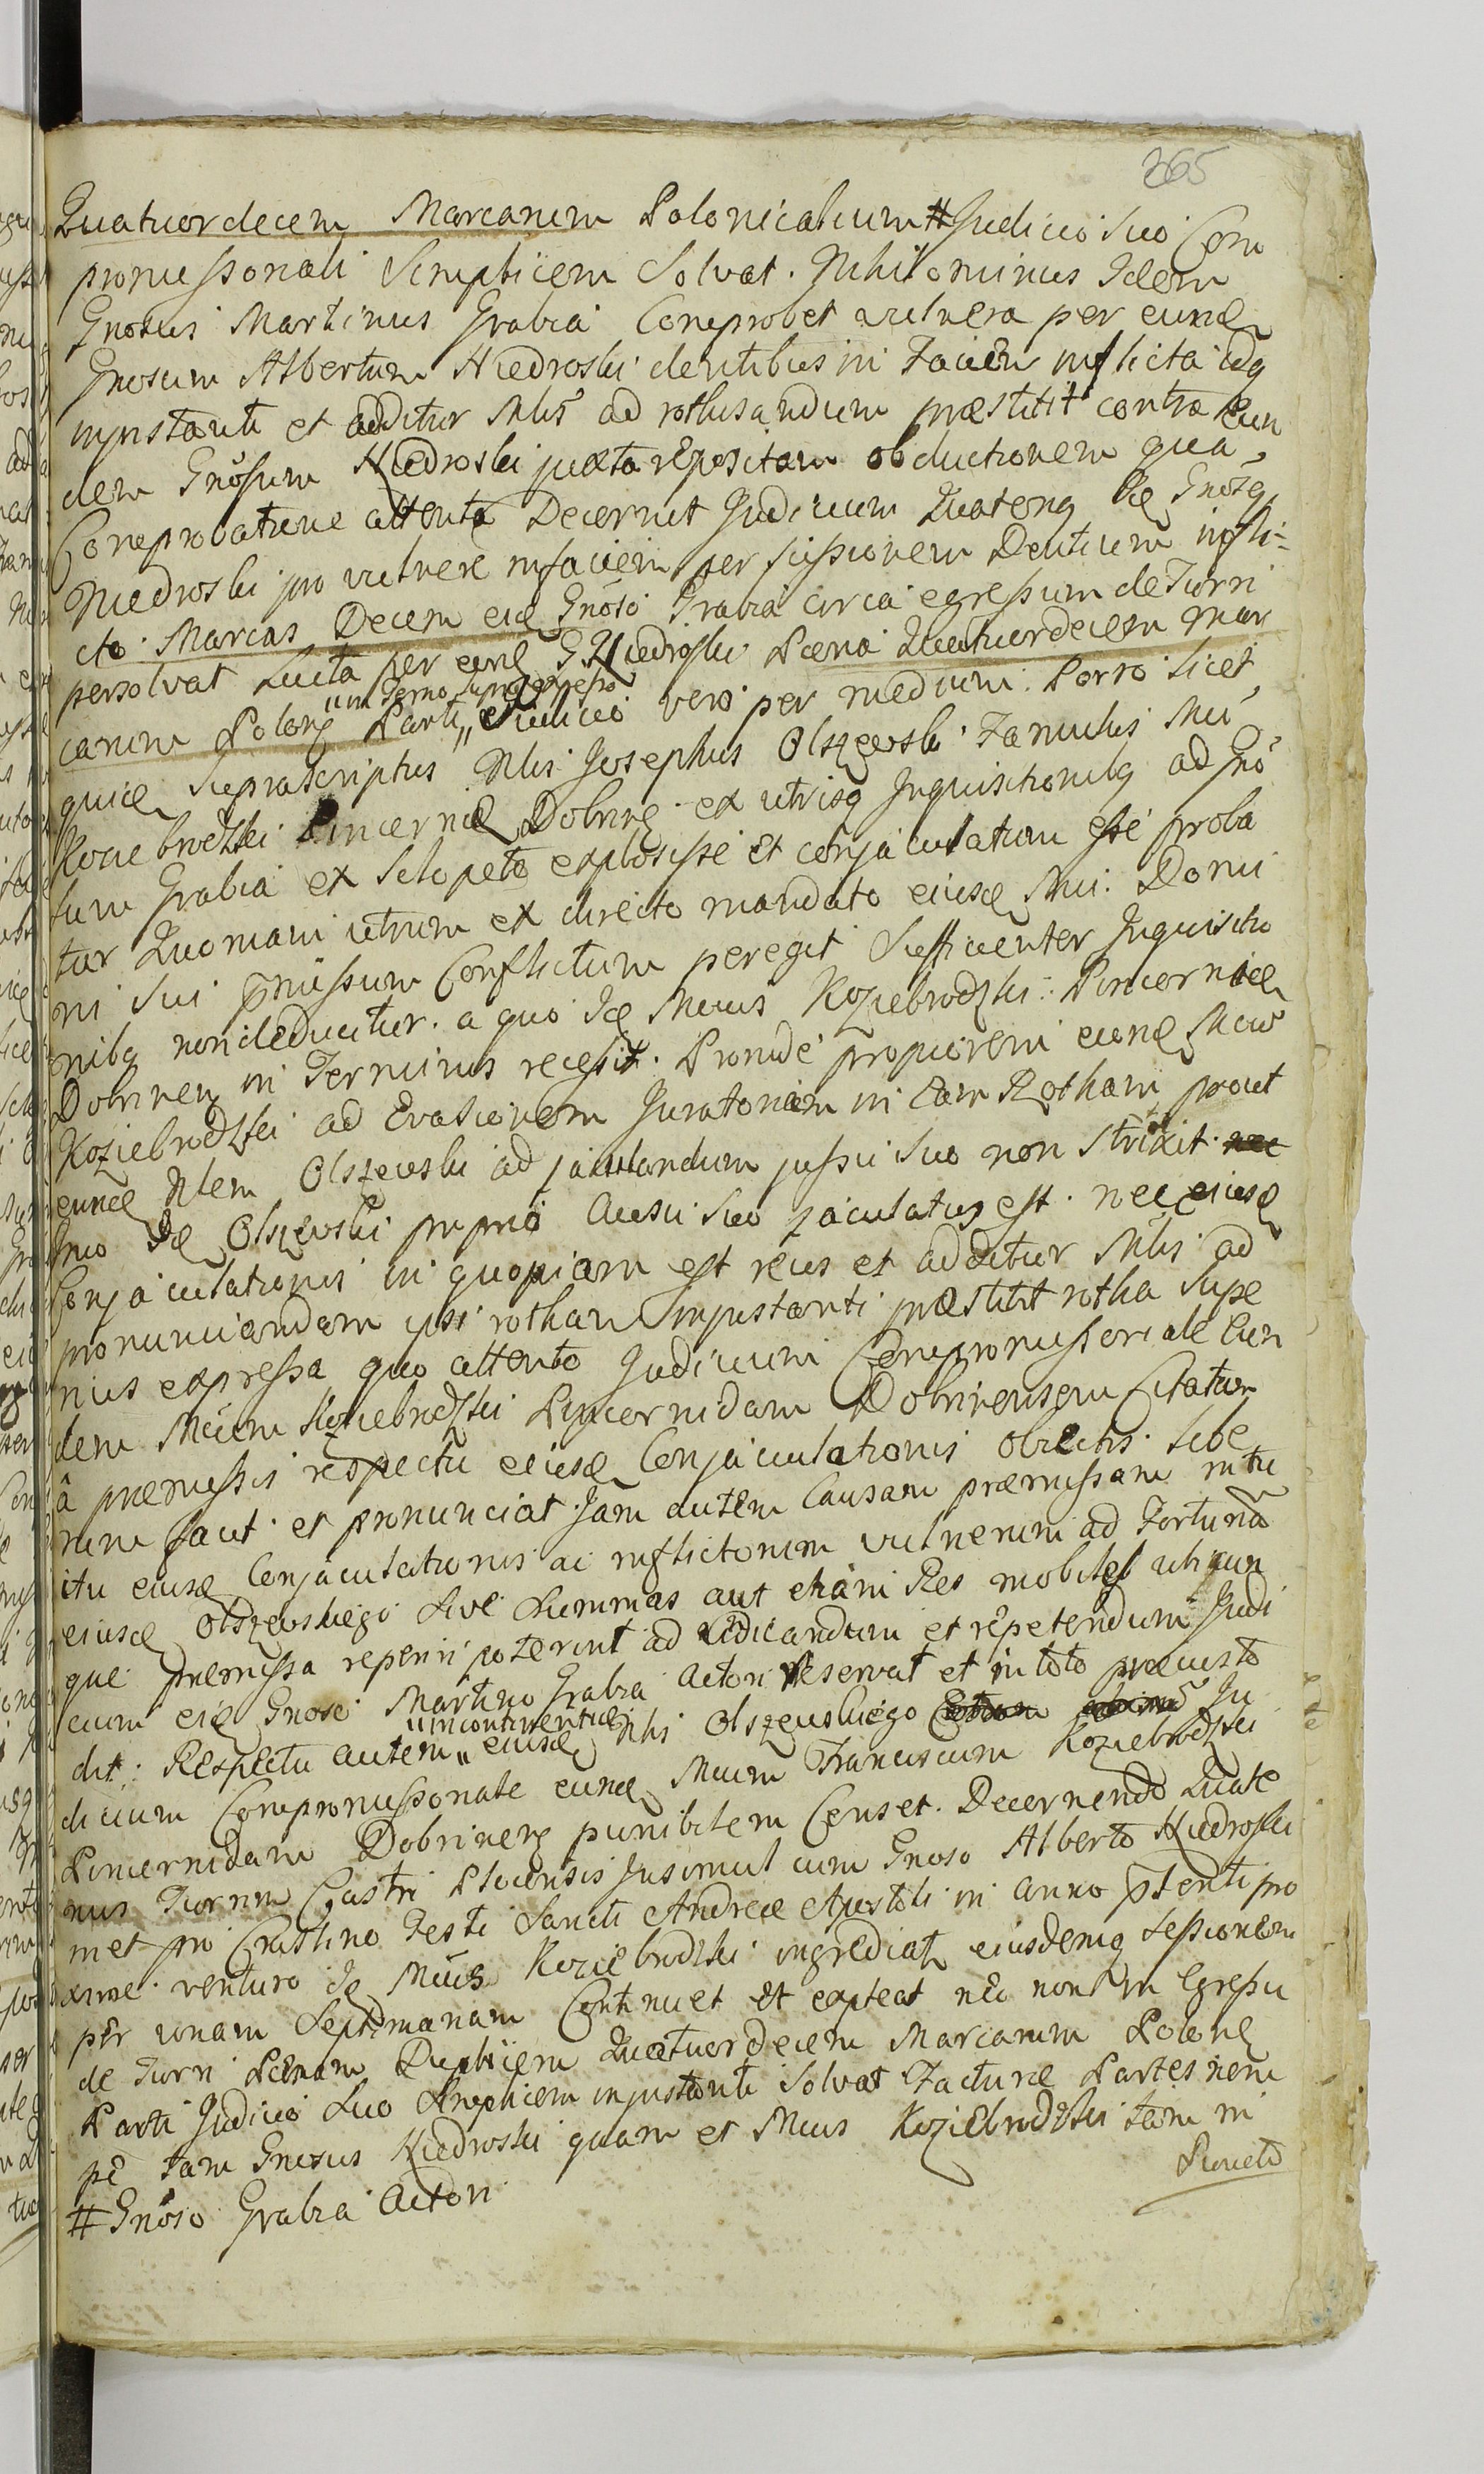 365
Quatuordecem Marcarum Polonicalium # Judicio suo Com
promissoriali Simplicem Solvat. Nihilominus Idem
Gnosus Martinus Grabia Comprobet vulnera per eund
Gnosum Albertum Niedroski dentibus in Faciem inflicta idq
injustanti et additur Nlis ad rothisandum præstitit contra Eun
dem Gnosum Niedroski juxta repositam obductionem qua
Comprobatione attenta Decernit Judicium Quatenq Id Gnosq
Niedroski pro vulnere in faciem per scissionem Dentium infli-
cto Marcas Decem eid Gnoso Grabia circa egressum de Turri
persolvat Luita per eund G Niedroski Pæna Quatuordecem Mar
in Termo supra expresso
carum Polong Parti " Judicio vero per medium. Porro licet
quid Suprascriptus Nlis Josephus Olszewski Famulus Mci
Koziebrodzki Pincernid Dobrine ex utrisq Inquisitionibq ad Gno
sum Grabia ex Sclopeto explosisse et conjaculatum esse proba
tur Quoniam utrum ex directo mandato eiusd Mci Domi
ni sui pmissum Conflictum peregit Sufficienter Inquisitio
nibq non deducitur. a quo Id Mcus Koziebrodzki Pincernida
Dobrinen in Terminis recessit. Proinde propiorem eund Mcum
Koziebrodzki ad Evasionem Juratoriam in Eam Rotham prout
eund Nlem Olszewski ad jaculandum jussu suo non strinxit
imo Id Olszewski proprio Ausu suo jaculatus est. nec eiusd
Conjaculationis in quopiam est reus et additur Nlis ad
pronunciandam ipsi rotham Injustanti præstitit rotha Supe
rius expressa quo attento Judicium Compromissoriale Eun
dem Mcum Koziebrodzki Pincernidam Dobrinensem Citatum
â præmissis respectu eiusd Conjaculationis obiectis libe
rum facit et pronunciat. Jam autem Causam præmissam intu
itu eiusd Conjaculationis ac inflictorum vulnerum ad Fortunā
eiusd Olszewskiego sive Summas aut etiam Res mobiles ubicun
que præmissa reperiri poterint ad vidicandum et repetendum Judi
cium eid Gnoso Martino Grabia Actori Reservat et in toto præcusto
incontinentiæ
dit. Respectu autem " eiusd Nlis Olszewskiego Ju
dicium Compromissoriale eund Mcum Franciscum Koziebrodzki
Pincernidam Dobrinene punibilem Censet. Decernendo Quate
nus Turrim Castri Plocensis Insimul cum Gnoso Alberto Niedroski
met pro Crastino Festi Sancti Andreæ Apostoli in anno pstenti pro
xime venturo Id Mcus Koziebrodzki ingrediat eiusdemq Sessionem
per unam Septimanam Continuet Et expleat nec non in Egressu
de Turri Pænam Duplicem Quatuordecem Marcarum Polone
Parti Judicio suo Simplicem injustanti Solvat Facturæ Partes nem
pe tam Gnosus Niedroski quam et Mcus Koziebrodzki tam in
Puncto
# Gnoso Grabia Actori